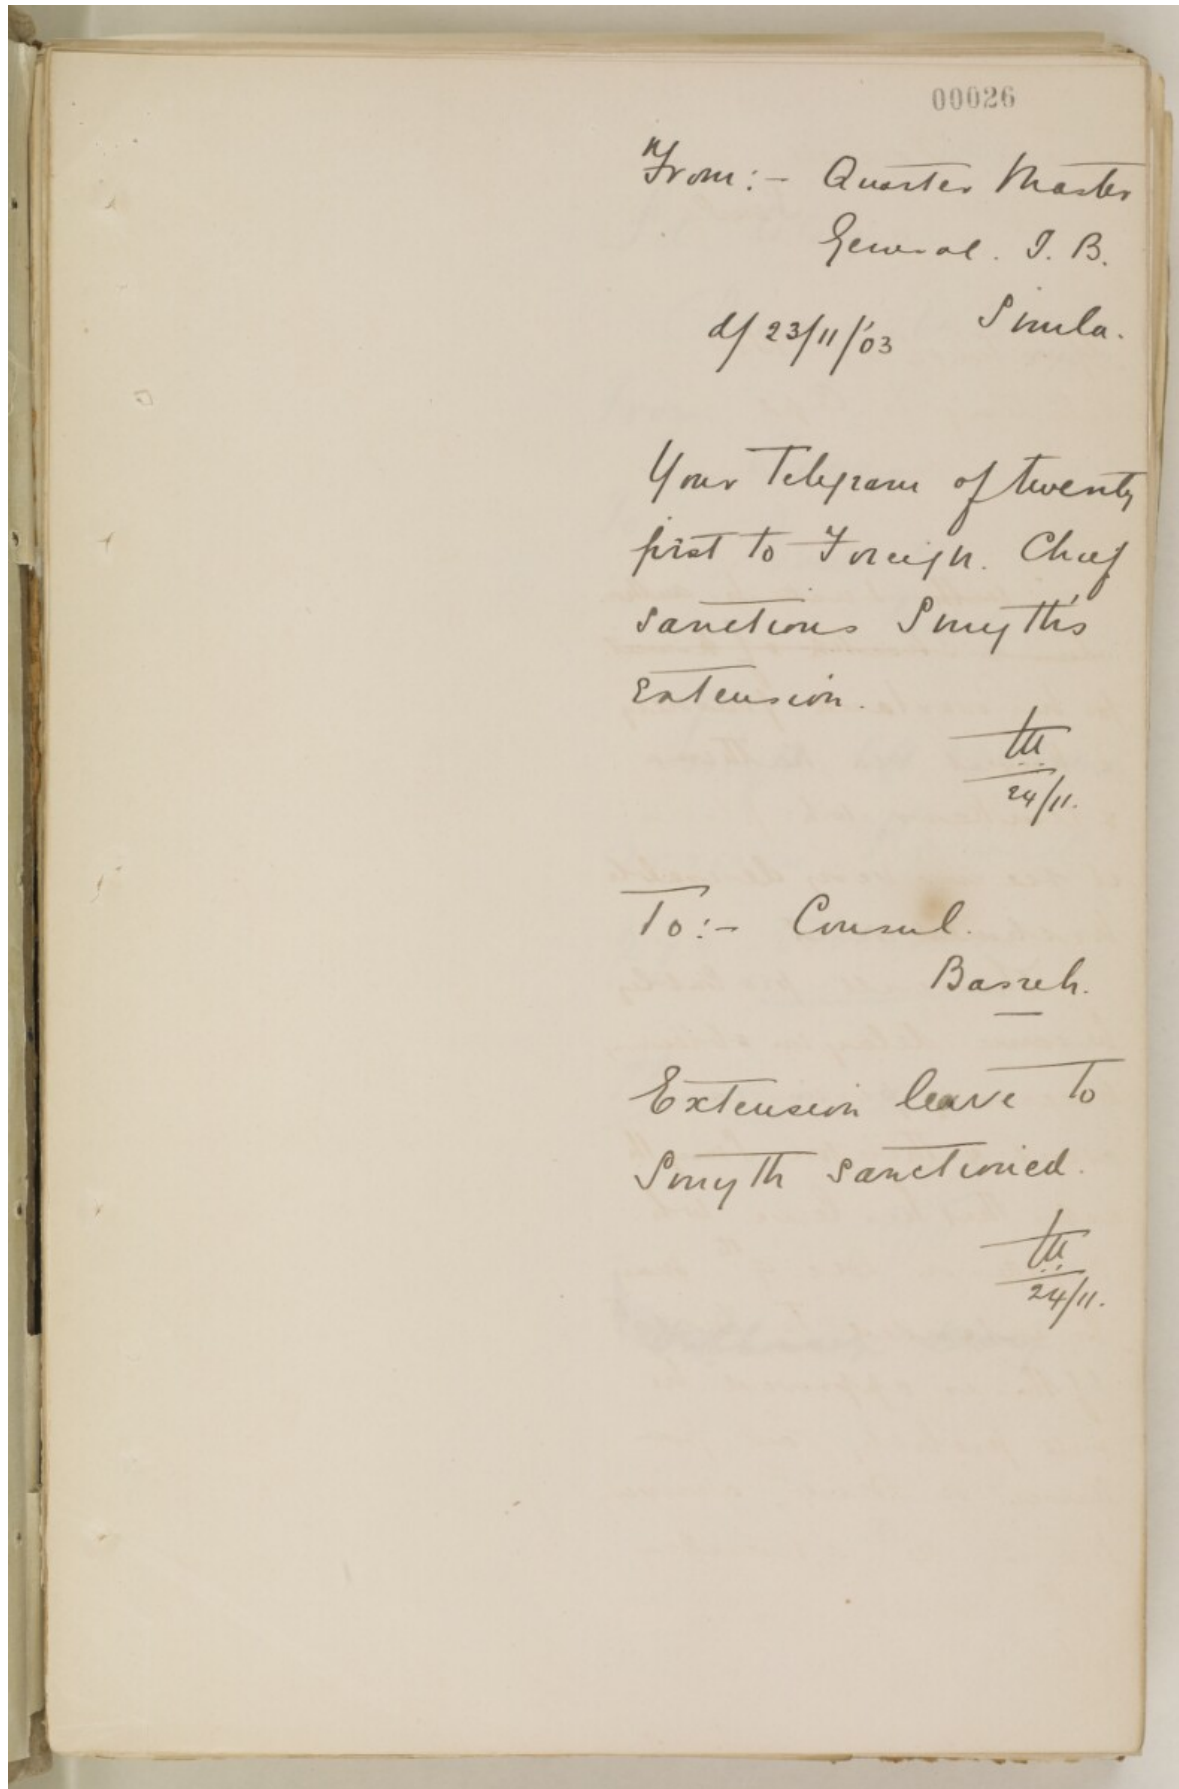 00026
From:- Quarter Master
General. I. B.
Simla.
d/ 23/11/'03
Your Telegram of twenty
first to Foreign. Chief
sanctions Smyth's
Extension.
24/11.
To:- Consul.
Basreh.
Extension leave to
Smyth sanctioned.
24/11.